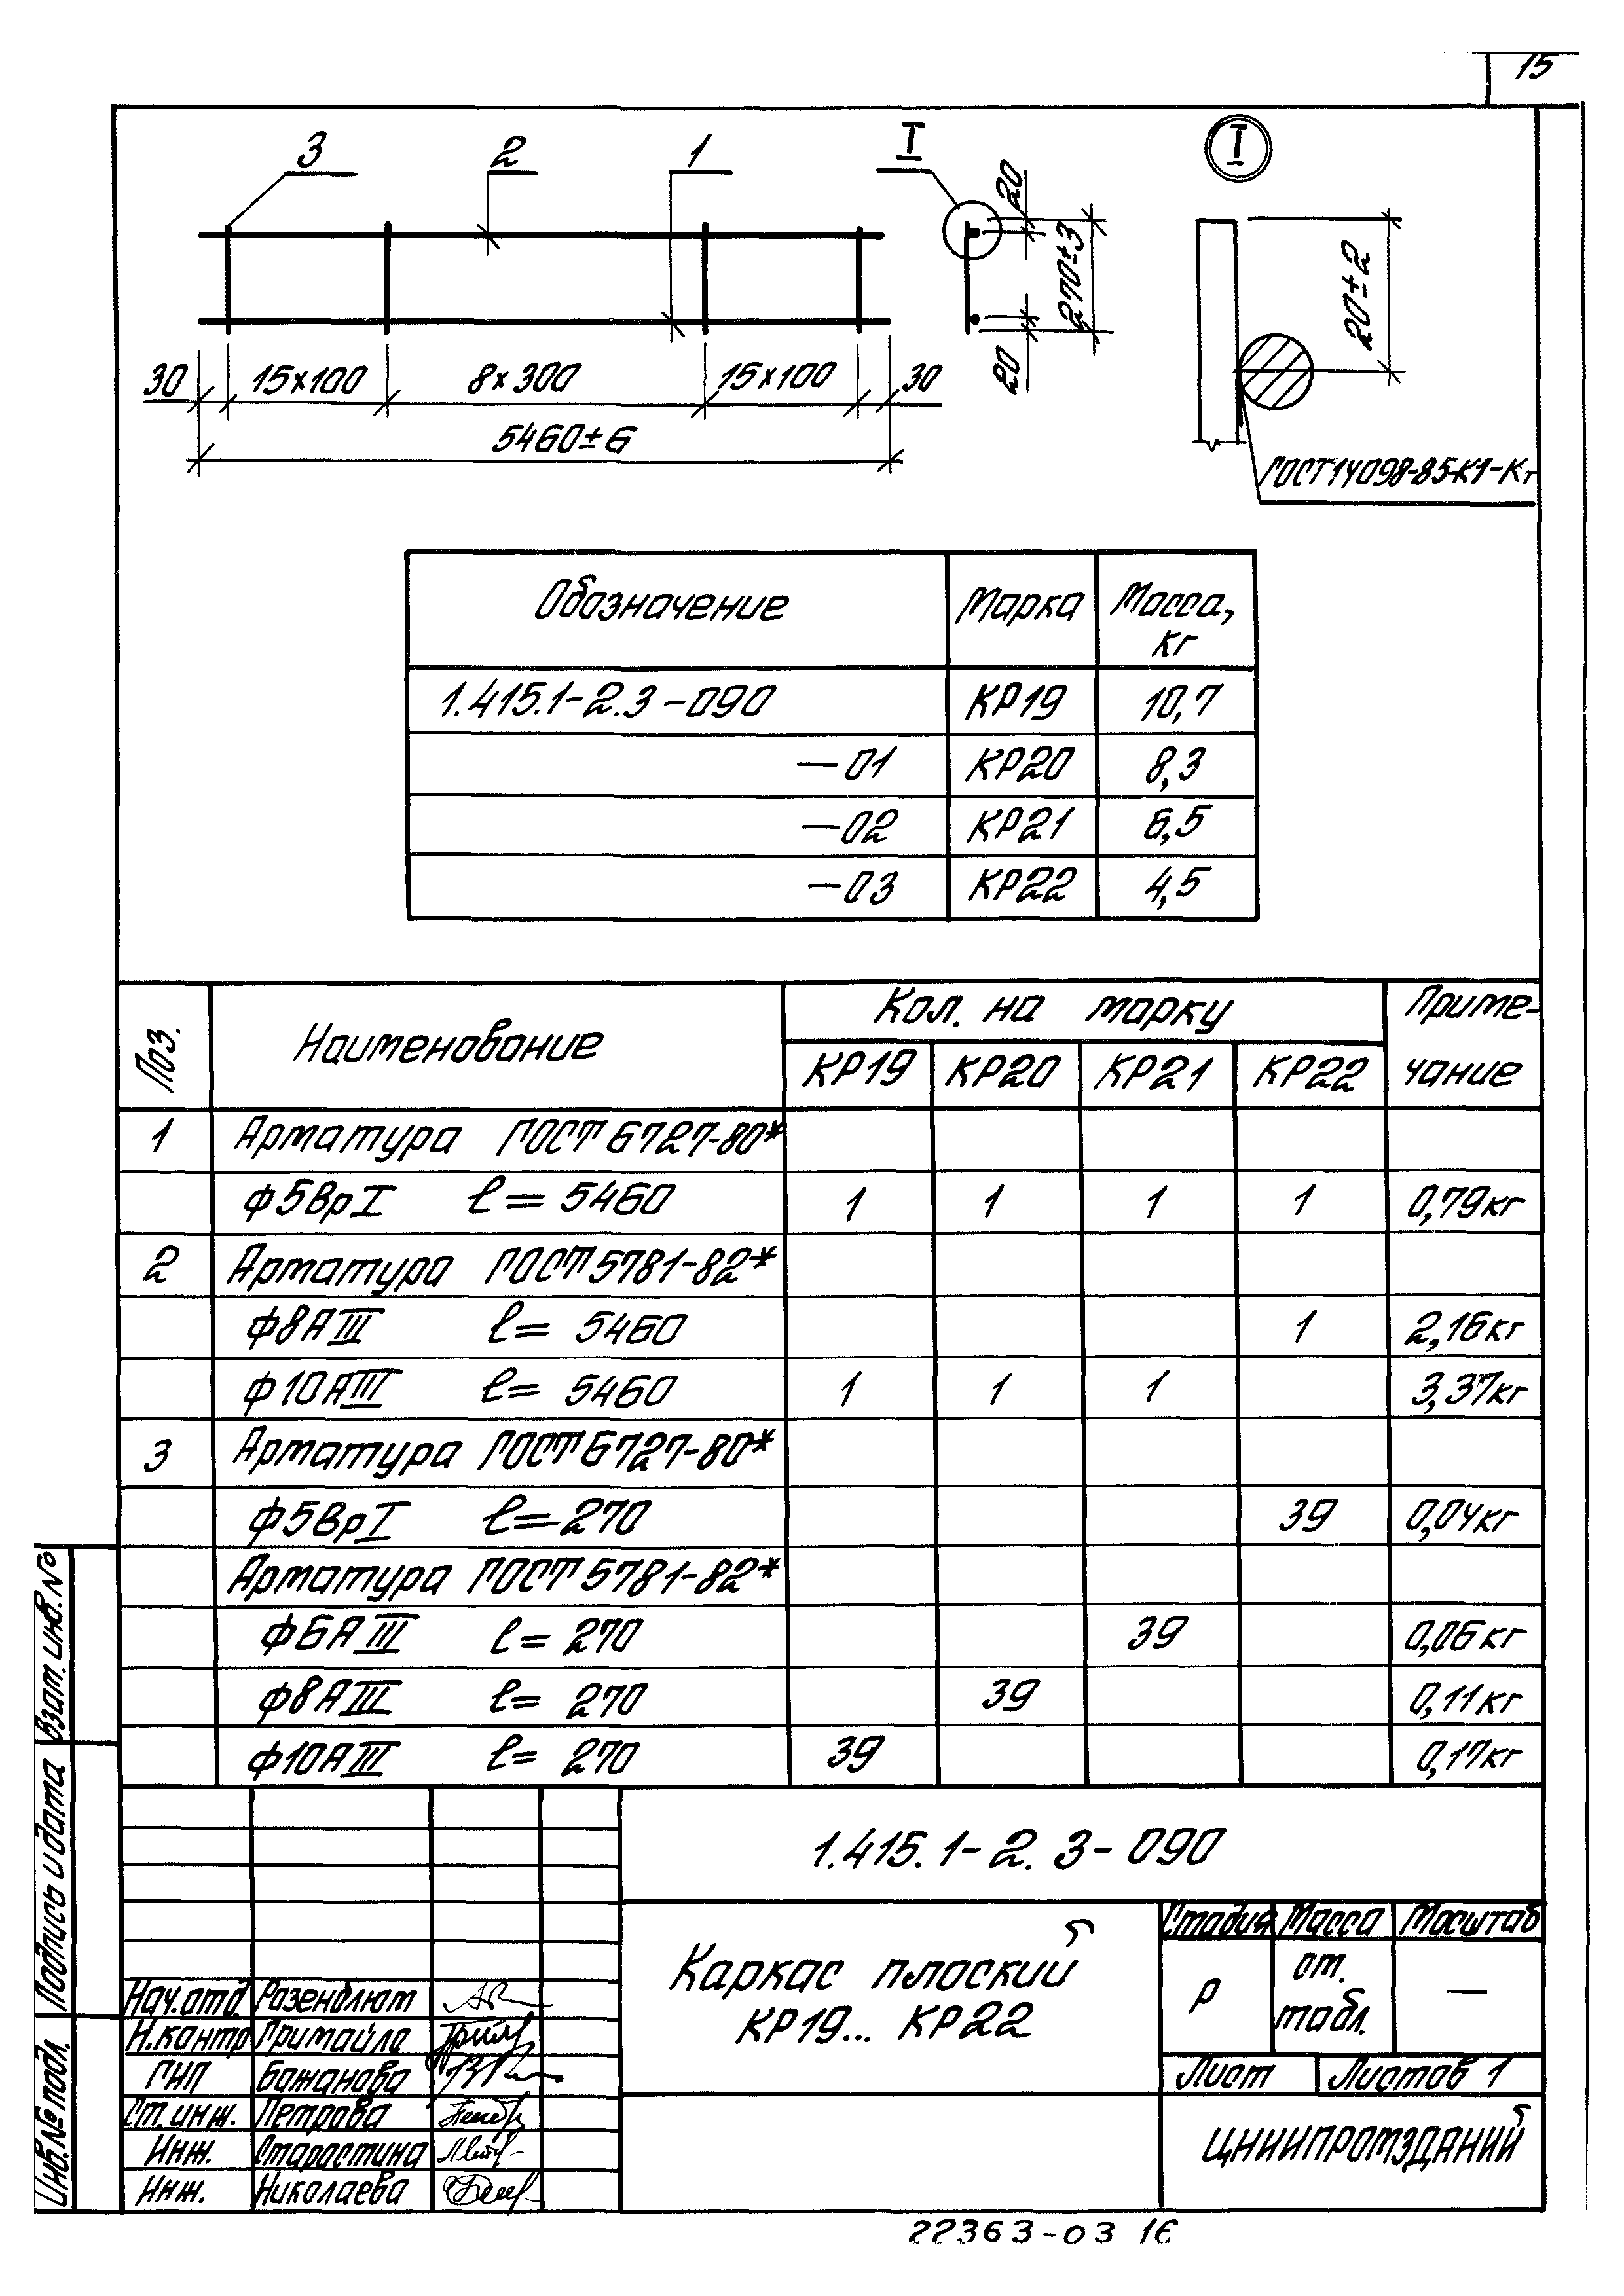 15
3 2 1 I I
20
270±3
20
20±2
30 15×100 8×300 15×100 30
5460±6
ГОСТ14098-85-К1-Кт
Обозначение Марка Масса, кг
1.415.1-2.3-090 КР19 10,7
-01 КР20 8,3
-02 КР21 6,5
-03 КР22 4,5
Поз. Наименование Кол. на марку Приме-
КР19 КР20 КР21 КР22 чание
1 Арматура ГОСТ 6727-80*
ф5ВрI ℓ= 5460 1 1 1 1 0,79кг
2 Арматура ГОСТ 5781-82*
ф8АIII ℓ= 5460 1 2,16кг
ф10АIII ℓ= 5460 1 1 1 3,37кг
3 Арматура ГОСТ 6727-80*
ф5ВрI ℓ=270 39 0,04кг
Арматура ГОСТ 5781-82*
ф6АIII ℓ= 270 39 0,06кг
ф8АIII ℓ= 270 39 0,11кг
ф10АIII ℓ= 270 39 0,17кг
1.415.1-2.3-090
Каркас плоский
КР19... КР22
Стадия Масса Масштаб
Р см. табл. —
Лист Листов 1
ЦНИИПРОМЗДАНИЙ
Нач.отд. Розенблюм
Н.контр Гримайло
ГИП Бажанова
Ст.инж. Петрова
Инж. Старостина
Инж. Николаева
Взам. инв. №
Подпись и дата
Инв. № подл.
22363-03 16